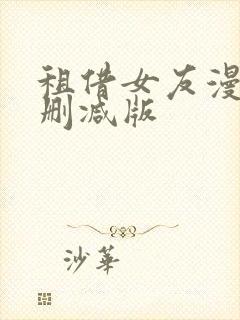 租借女友漫
删减版
沙華